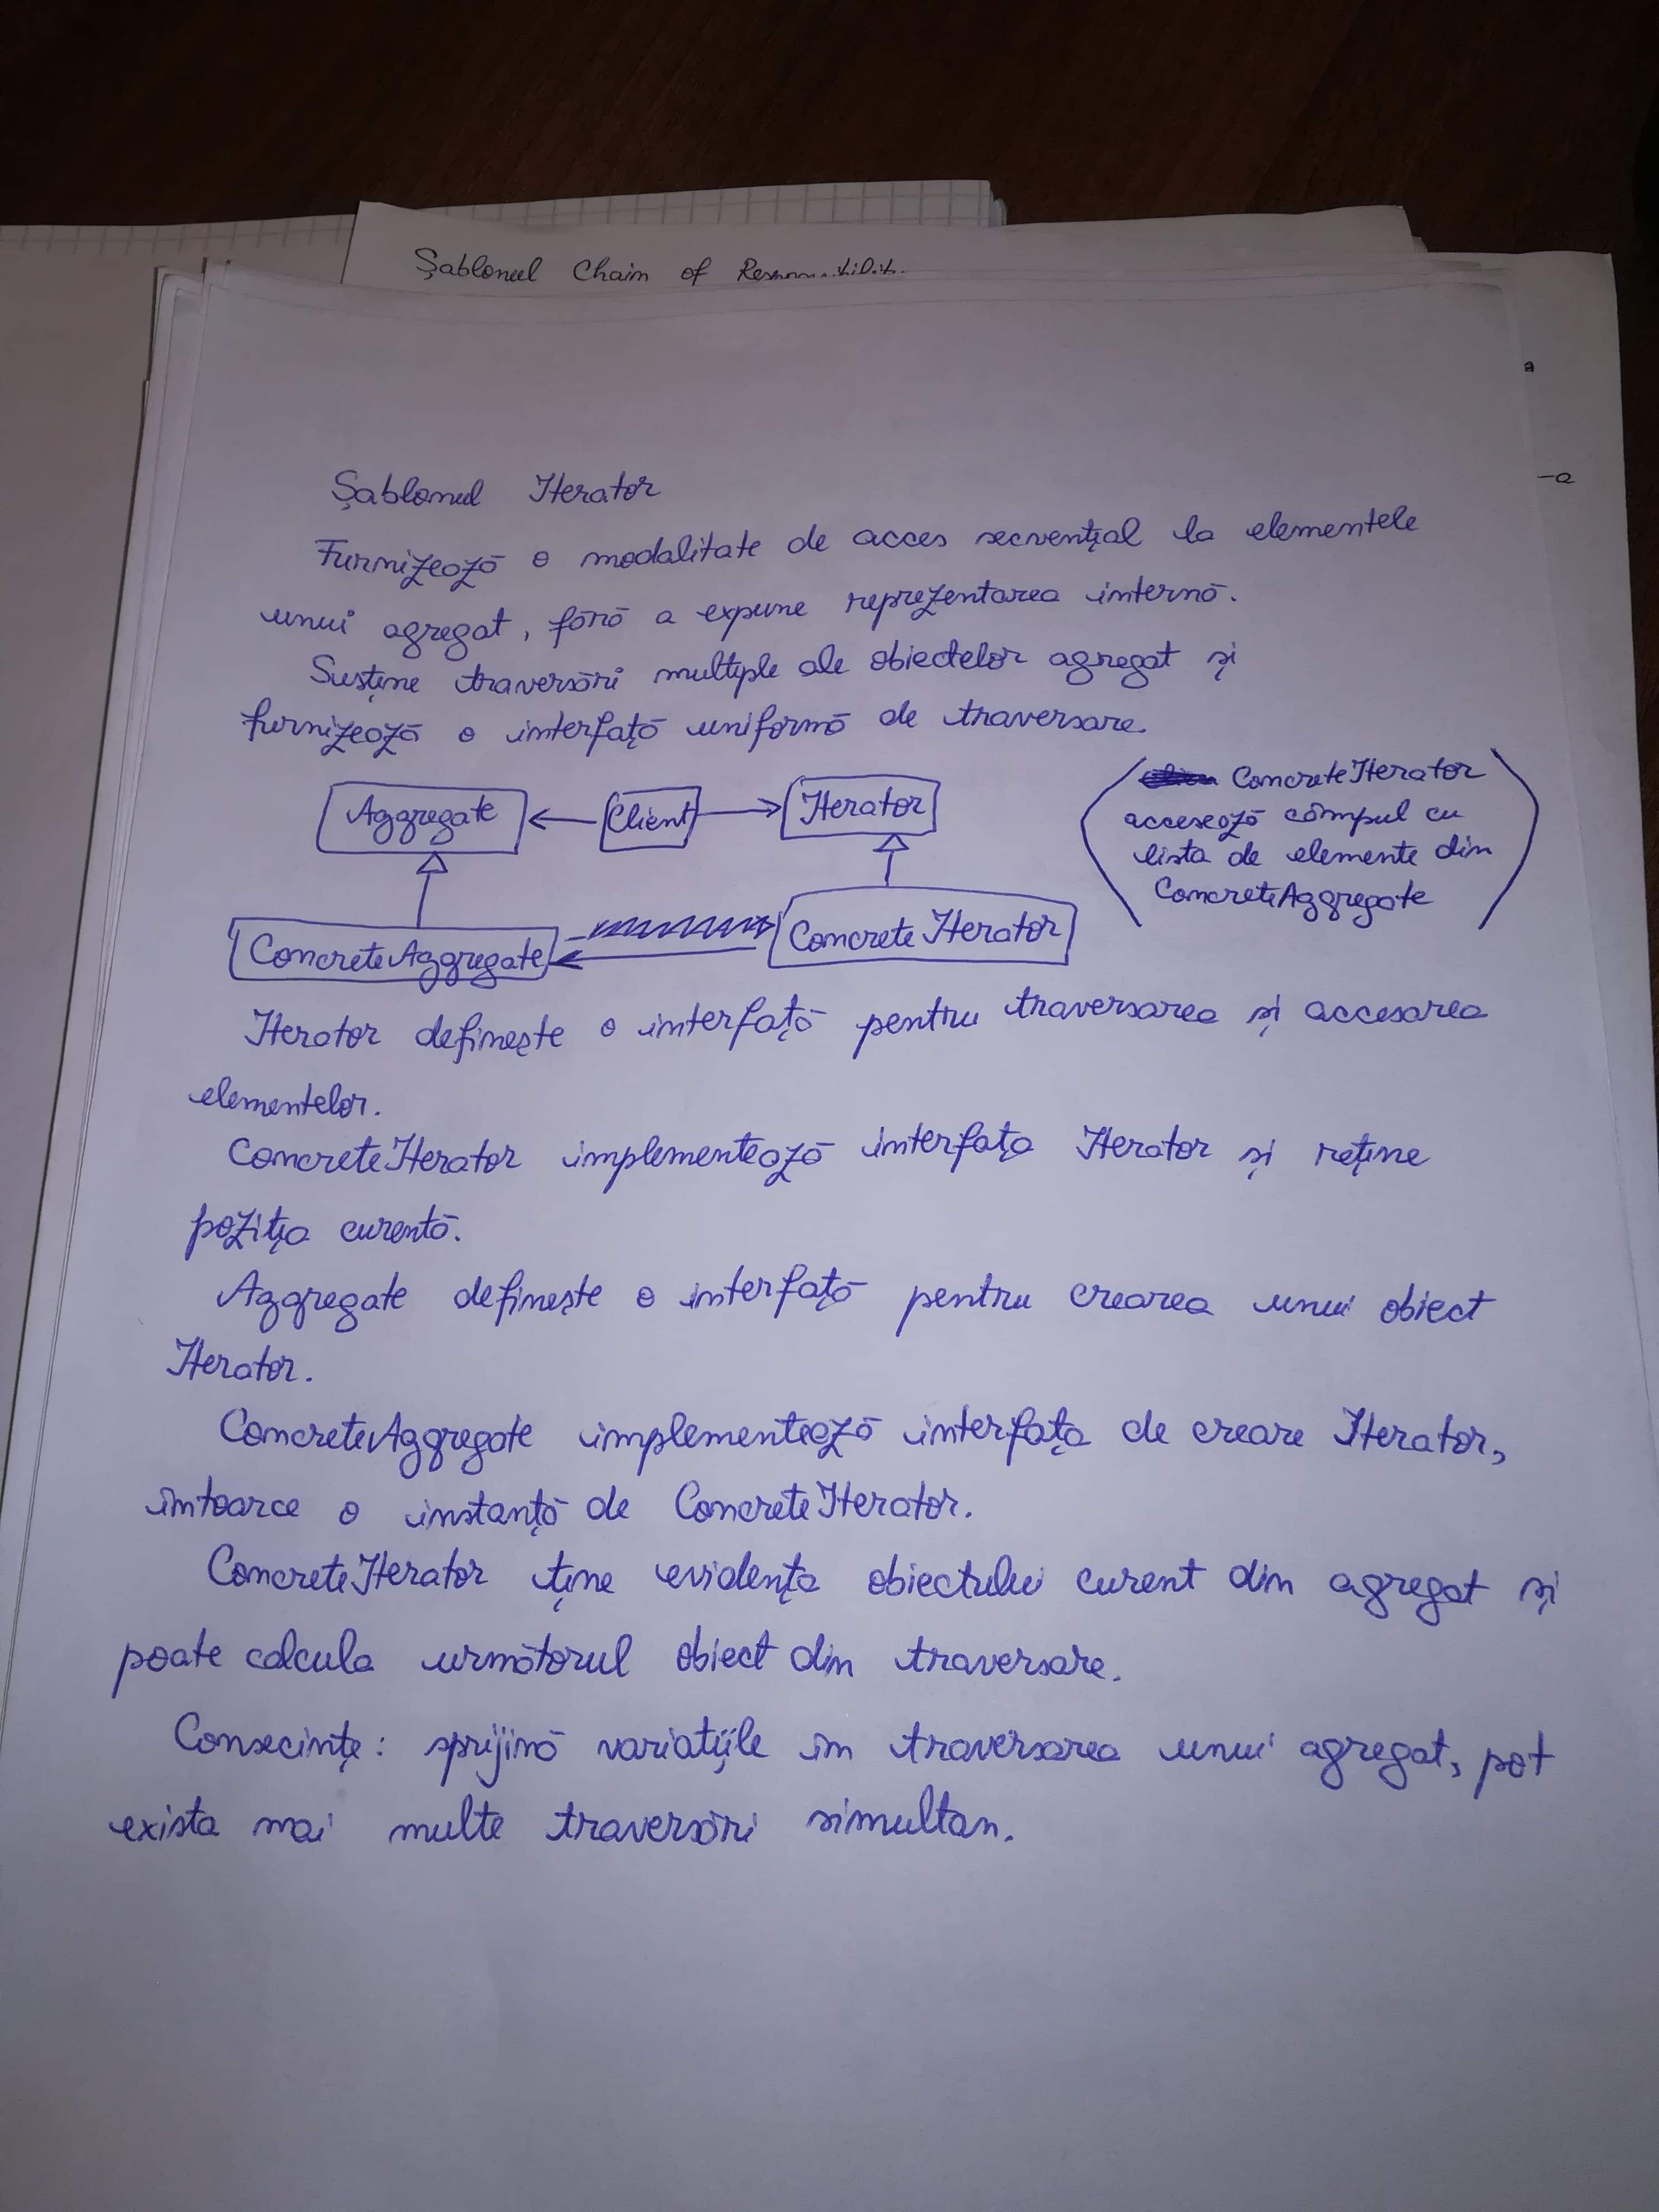 Șablonul Chain of
Șablonul Iterator
Furnizează o modalitate de acces secvențial la elementele
unui agregat, fără a expune reprezentarea internă.
Susține traversări multiple ale obiectelor agregat și
furnizează o interfață uniformă de traversare.
Aggregate Client Iterator
ConcreteIterator
accesează câmpul cu
lista de elemente din
ConcreteAggregate
ConcreteAggregate ConcreteIterator
Iterator definește o interfață pentru traversarea și accesarea
elementelor.
ConcreteIterator implementează interfața Iterator și reține
poziția curentă.
Aggregate definește o interfață pentru crearea unui obiect
Iterator.
ConcreteAggregate implementează interfața de creare Iterator,
întoarce o instanță de ConcreteIterator.
ConcreteIterator ține evidența obiectului curent din agregat și
poate calcula următorul obiect din traversare.
Consecințe: sprijină variațiile în traversarea unui agregat, pot
exista mai multe traversări simultan.